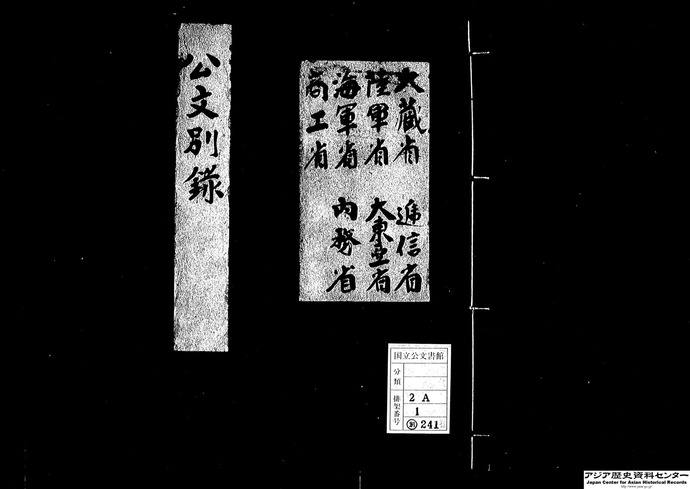 公文別録
大蔵省 逓信省
陸軍省 大東亜省
海軍省 内務省
商工省
国立公文書館
分類
排架番号
2 A
1
別 241
アジア歴史資料センター
Japan Center for Asian Historical Records
http://www.jacar.go.jp/